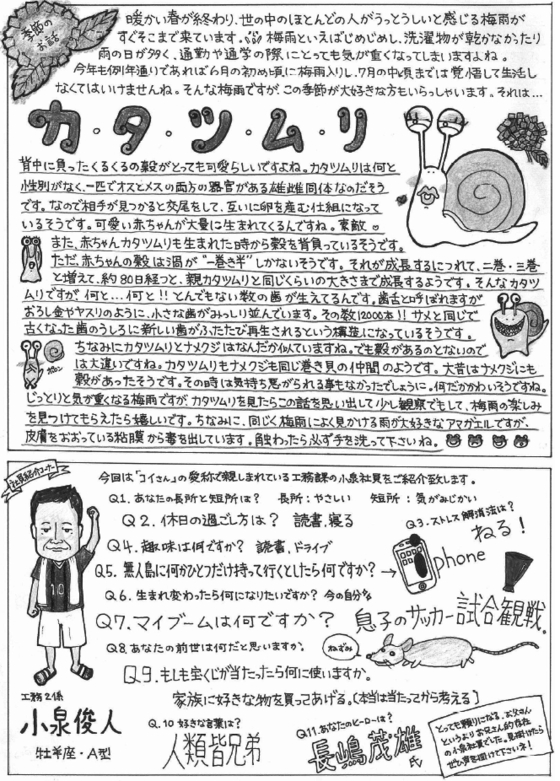 季節の
お話
暖かい春が終わり、世の中のほとんどの人がうっとうしいと感じる梅雨が
すぐそこまで来ています。梅雨といえばじめじめし、洗濯物が乾かなかったり
雨の日が多く、通勤や通学の際にとっても気が重くなってしまいますよね。
今年も例年通りであれば6月の初め頃に梅雨入りし、7月の中頃までは覚悟して生活し
なくてはいけませんね。そんな梅雨ですが、この季節が大好きな方もいらっしゃいます。それは…
カ・タ・ツ・ム・リ
背中に負ったくるくるの殻がとっても可愛らしいですよね。カタツムリは何と
性別がなく、一匹でオスとメスの両方の器官がある雄雌同体なのだそう
です。なので相手が見つかると交尾をして、互いに卵を産む仕組になって
いるそうです。可愛い赤ちゃんが大量に生まれてくるんですね。素敵♡
また、赤ちゃんカタツムリも生まれた時から殻を背負っているそうです。
ただ、赤ちゃんの殻は渦が“一巻き半”しかないそうです。それが成長するにつれて、二巻・三巻
と増えて、約80日経つと、親カタツムリと同じくらいの大きさまで成長するようです。そんなカタツ
ムリですが何と…何と!!とんでもない数の歯が生えてるんです。歯舌と呼ばれますが
おろし金やヤスリのように、小さな歯がみっしり並んでいます。その数12000本!!サメと同じで
古くなった歯のうしろに新しい歯がふたたび再生されるという構造になっているそうです。
ちなみにカタツムリとナメクジはなんだか似ていますね。でも殻があるのとないので
は大違いですね。カタツムリもナメクジも同じ巻き貝の仲間のようです。大昔はナメクジにも
殻があったそうです。その時は気持ち悪がられる事もなかったでしょうに。何だかかわいそうですね。
じっとりと気が重くなる梅雨ですが、カタツムリを見たらこの話を思い出して少し観察でもして、梅雨の楽しみ
を見つけてもらえたら嬉しいです。ちなみに、同じく梅雨によく見かける雨が大好きなアマガエルですが、
皮膚をおおっている粘膜から毒を出しています。触わったら必ず手を洗って下さいね。
社員紹介コーナー
今回は「コイさん」の愛称で親しまれている工務課の小泉社員をご紹介致します。
Q1.あなたの長所と短所は? 長所:やさしい 短所:気がみじかい
Q2.休日の過ごし方は? 読書、寝る
Q.3.ストレス解消法は?
ねる!
Q4.趣味は何ですか? 読書、ドライブ
Q5.無人島に何かひとつだけ持って行くとしたら何ですか?→
phone
Q.6.生まれ変わったら何になりたいですか? 今の自分
Q7.マイブームは何ですか? 息子のサッカー試合観戦。
Q.8.あなたの前世は何だと思いますか。
ねずみ
Q9.もしも宝くじが当たったら何に使いますか。
家族に好きな物を買ってあげる。(本当は当たってから考える)
工務2係
小泉俊人
牡羊座・A型
Q.10 好きな言葉は?
人類皆兄弟
Q11.あなたのヒーローは?
長嶋茂雄氏
とっても頼りになる、お父さん
というよりお兄さん的存在
の小泉社員でした。見掛けたら
ぜひ声を掛けて下さいネ!